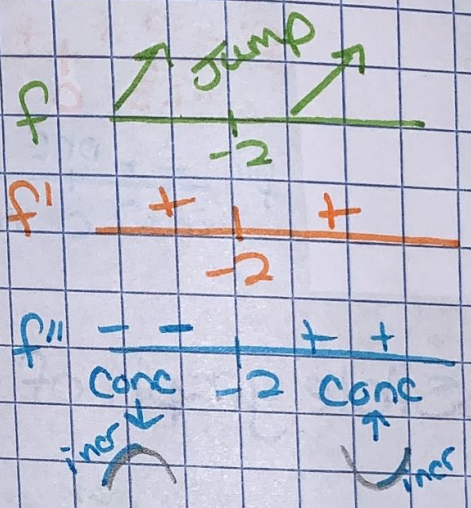 Jump
f
-2
f' + +
-2
f" - - + +
conc -2 conc
incr incr